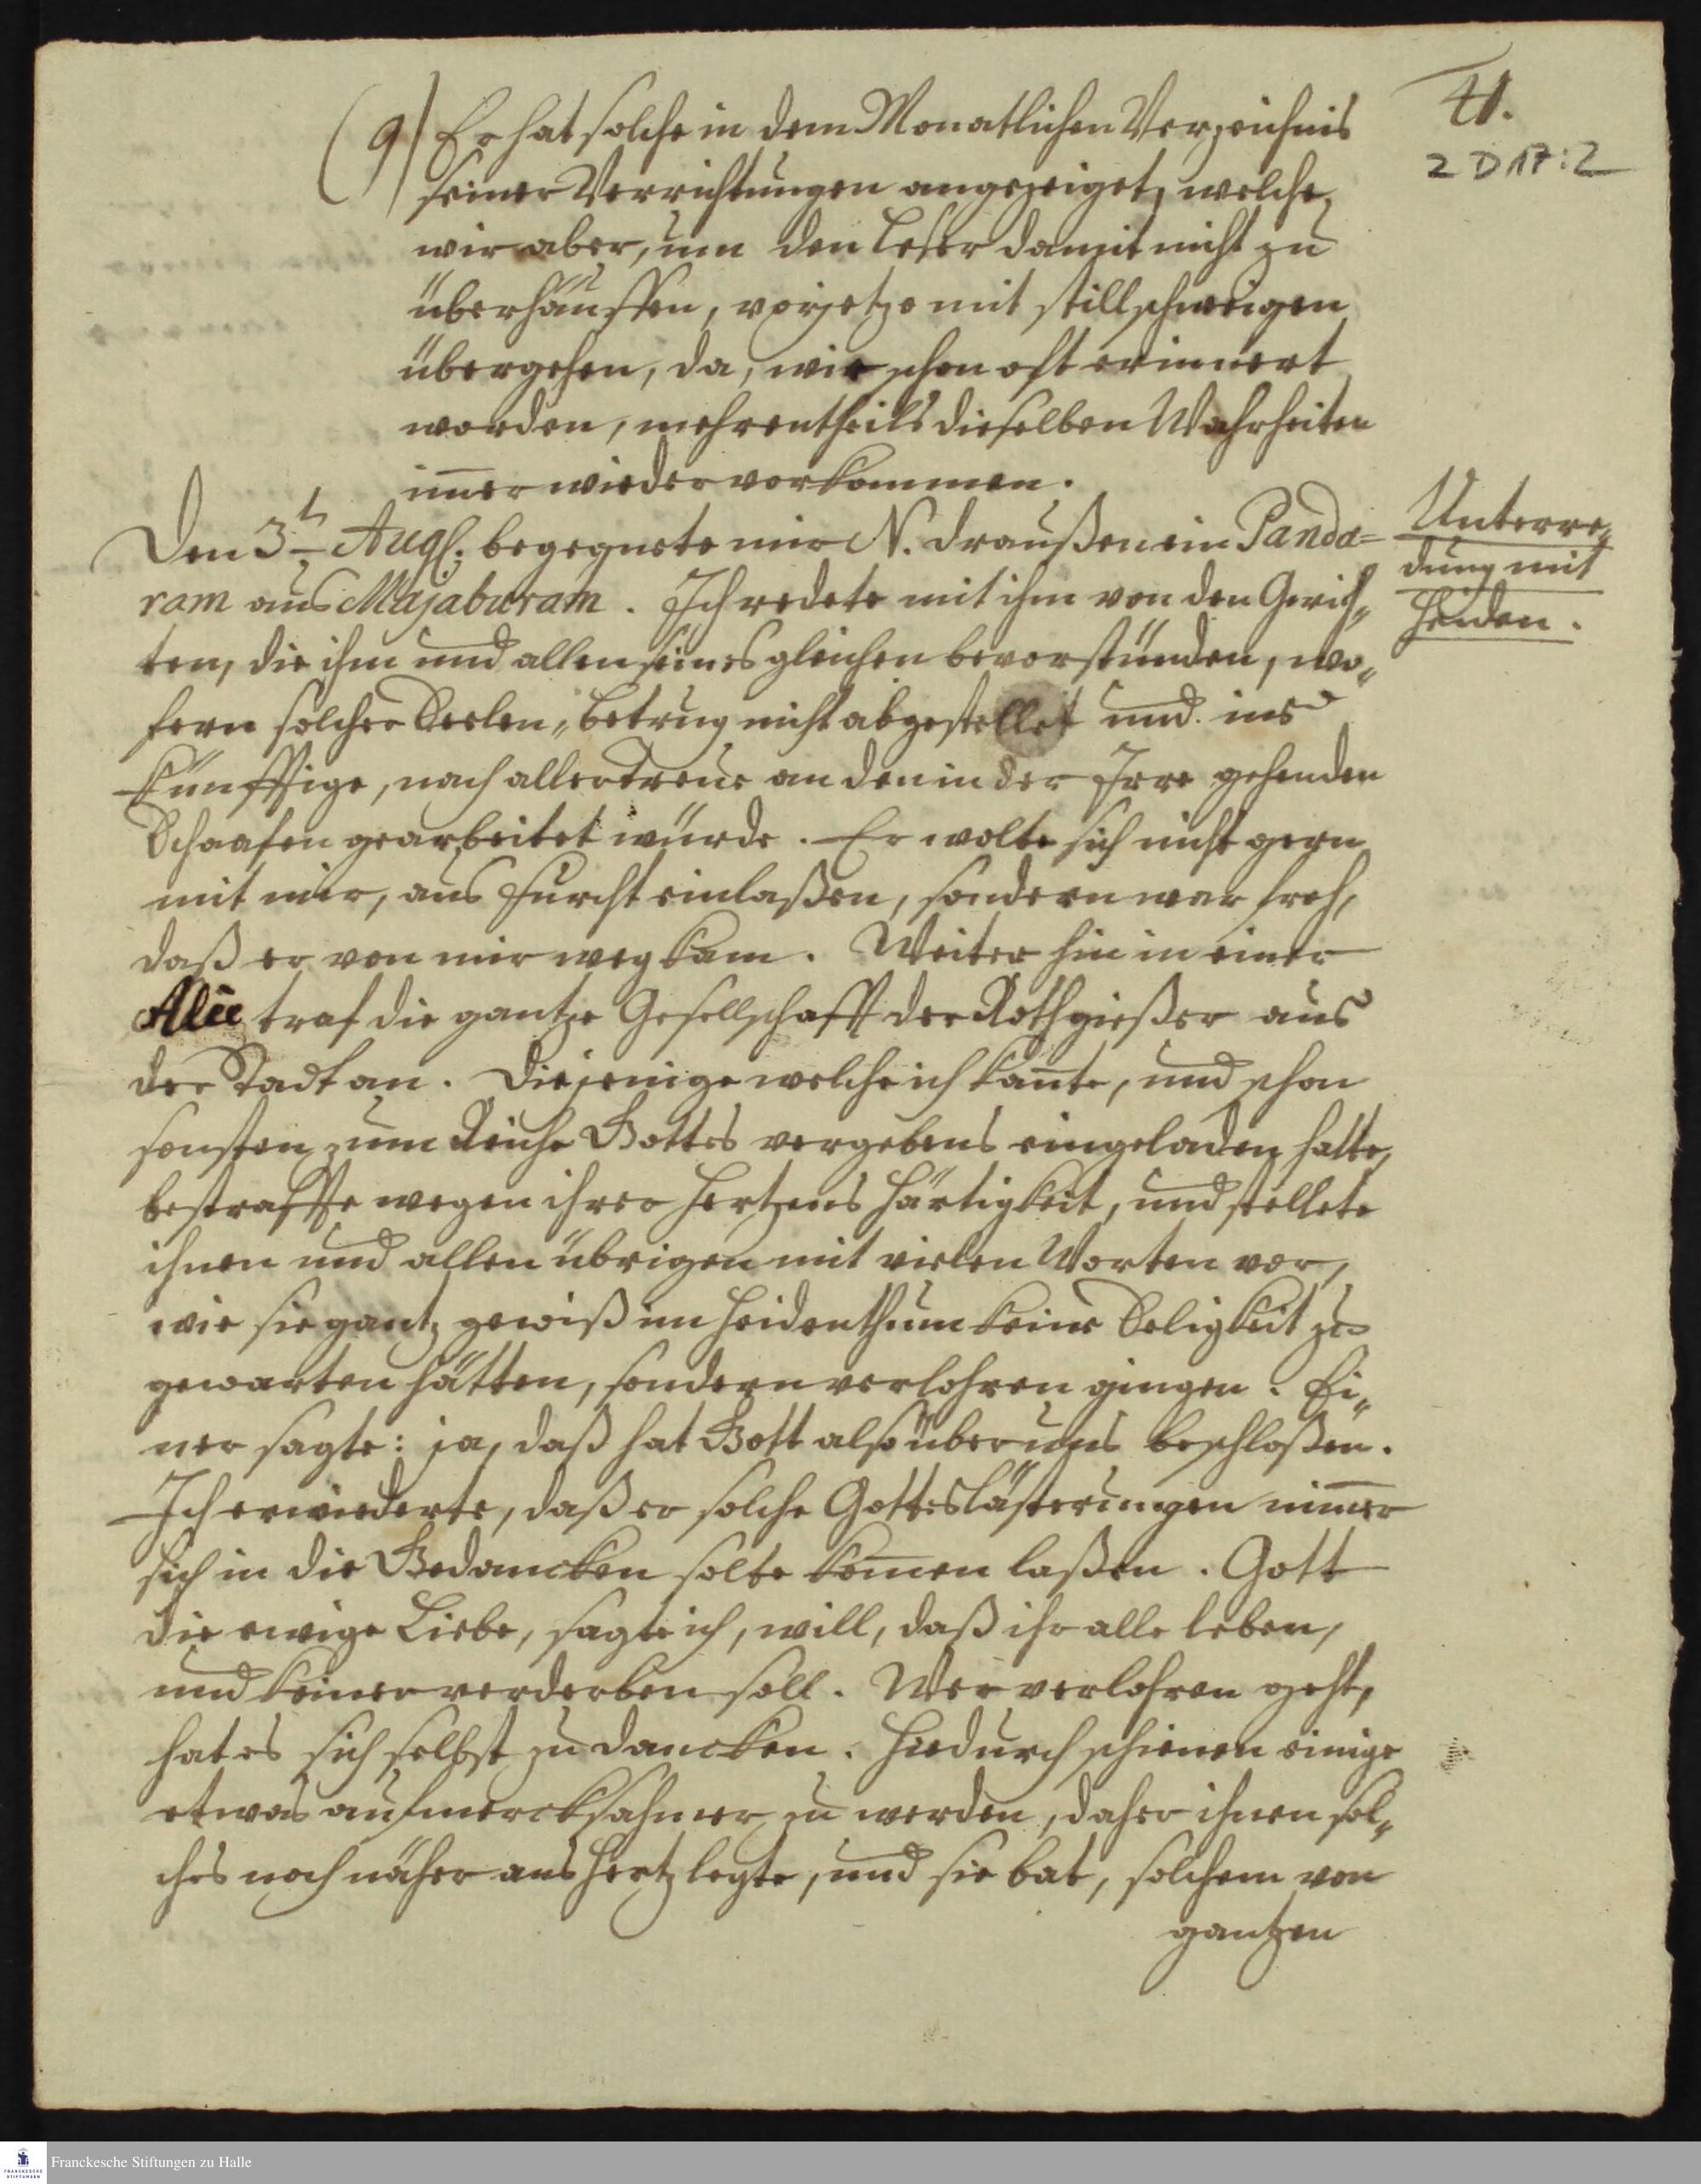 41.
2 D 17:2
(9) Er hat solche in dem Monatlichen Verzeichnis
seiner Verrichtungen angezeiget, welche
wir aber, um den Leser damit nicht zu
überhäuffen, vorjetzo mit stillschweigen
übergehen, da, wie schon oft erinnert
worden, mehrentheils dieselben Wahrheiten
im̅er wieder vorkommen.
Unterre„
dung mit
Heiden.
Den 3t. Augs. begegnete mir N. draußen ein Panda=
ram aus Majaburam. Ich redete mit ihm von den Gerich„
ten, die ihm und allen seines gleichen bevorstünden, wo„
fern solcher Seelen„betrug nicht abgestellet und ins
künfftige, nach aller Treue an den in der Irre gehenden
Schaafen gearbeitet würde. Er wolte sich nicht gern
mit mir, aus Furcht einlaßen, sondern war froh,
daß er von mir weg kam. Weiter hin in einer
Alee traf die gantze Gesellschafft der Rothgießer aus
der Stadt an. Diejenige welche ich kan̅te, und schon
sonsten zum Reiche Gottes vergebens eingeladen hatte,
bestraffte wegen ihrer Hertzens Härtigkeit, und stellete
ihnen und allen übrigen mit vielen Worten vor,
wie sie gantz gewiß im Heidenthum keine Seligkeit zu
gewarten hätten, sondern verlohren gingen. Ei„
ner sagte: ja, daß hat Gott also über uns beschloßen.
Ich erwiederte, daß er solche Gotteslästerungen nim̅er
sich in die Gedancken solte kom̅en laßen. Gott
die ewige Liebe, sagte ich, will, daß ihr alle leben,
und keiner verderben soll. Wer verlohren geht,
hat es sich selbst zu dancken. Hiedurch schienen einige
etwas aufmercksahmer zu werden, daher ihnen sol„
ches noch näher ans Hertz legte, und sie bat, solchem von
gantzen
Franckesche Stiftungen zu Halle